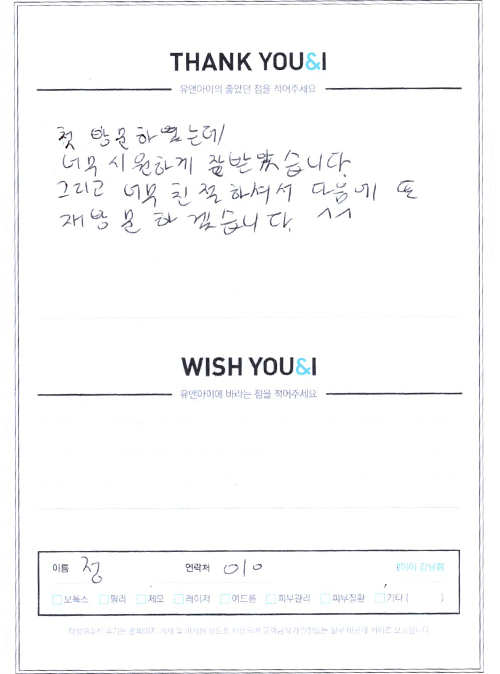 THANK YOU&I
유앤아이의 좋았던 점을 적어주세요
첫 방문하였는데
너무 시원하게 잘받았습니다.
그리고 너무 친절하셔서 다음에 또
재방문 하겠습니다. ^^
WISH YOU&I
유앤아이에 바라는 점을 적어주세요
이름 정 연락처 010 강남점
보톡스 필러 제모 레이저 여드름 피부관리 피부질환 기타 ( )